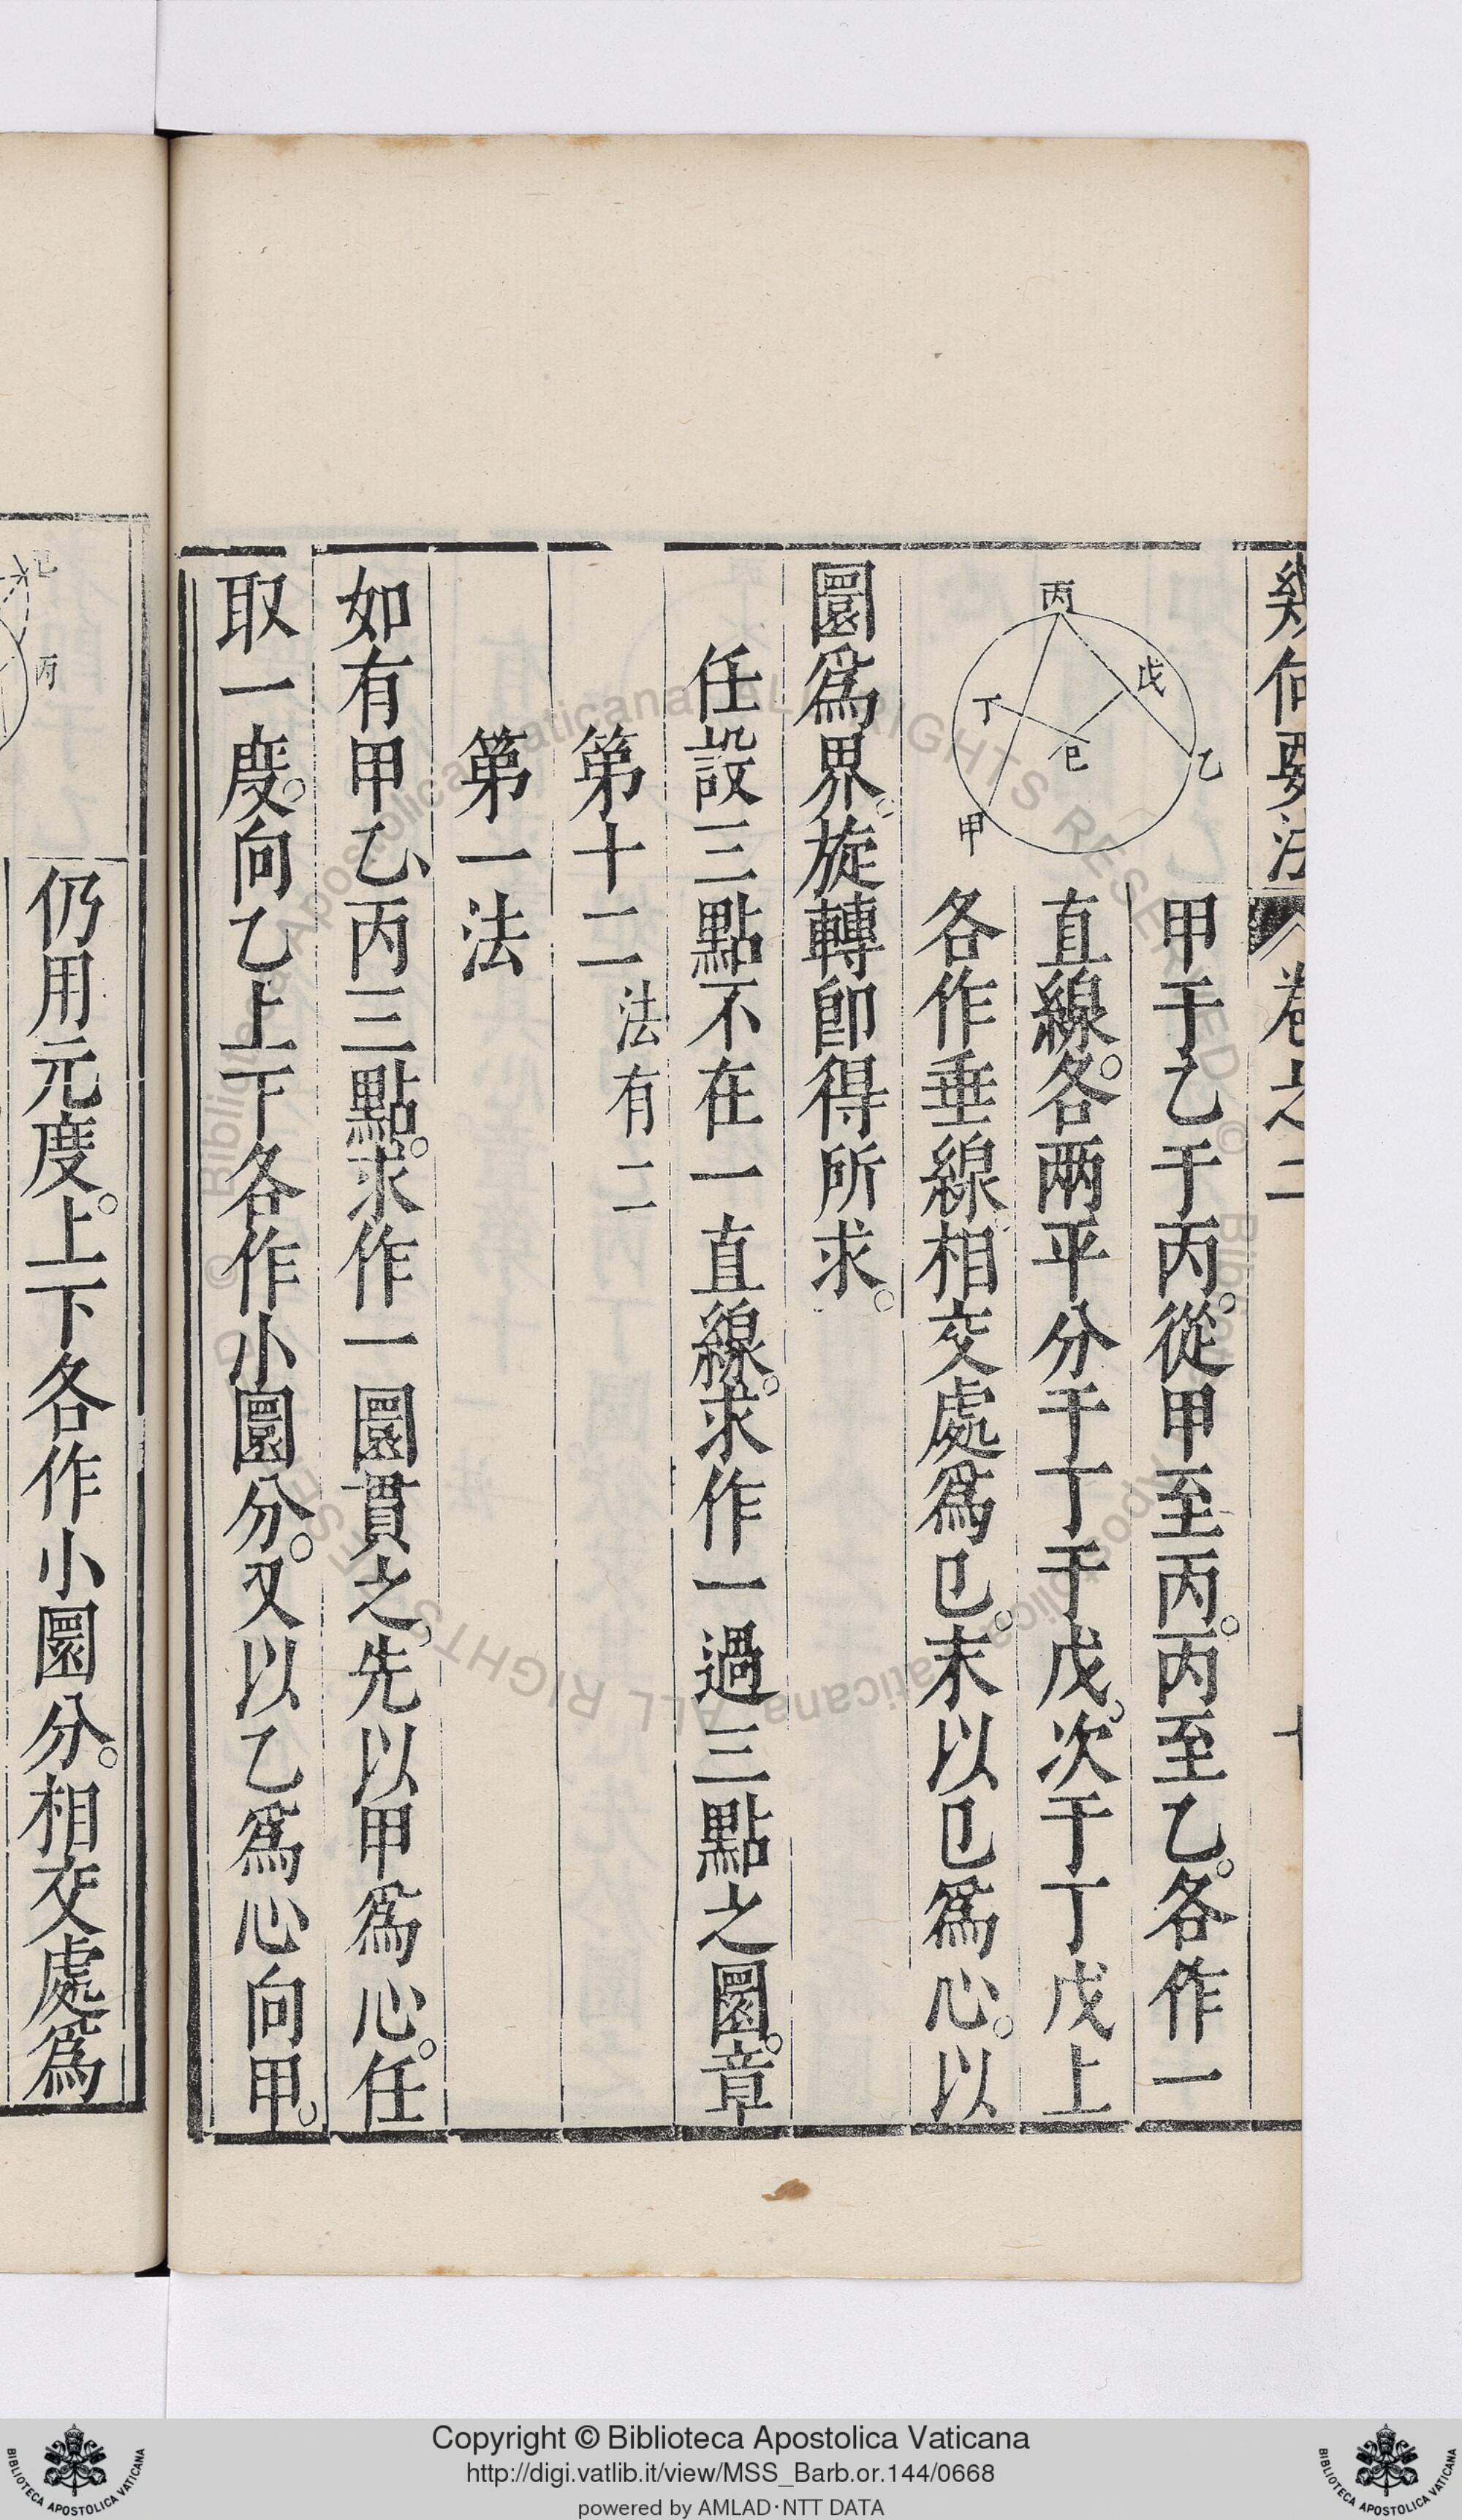 幾何要法
卷之二
丙
戊
丁
己
乙
甲
甲于乙于丙。從甲至丙。丙至乙。各作一
直線。各兩平分于丁于戊。次于丁戊上
各作垂線。相交處爲己。末以己爲心。以
圜爲界。旋轉卽得所求。
任設三點不在一直線。求作一過三點之圜。章
第十二法有二
第一法
如有甲乙、丙三點。求作一圜貫之。先以甲爲心。任
取一度。向乙上下各作小圜分。又以乙爲心向甲。
己
丙
仍用元度。上下各作小圜分。相交處爲
Copyright © Biblioteca Apostolica Vaticana
http://digi.vatlib.it/view/MSS_Barb.or.144/0668
powered by AMLAD·NTT DATA
BIBLIOTECA APOSTOLICA VATICANA
BIBLIOTECA APOSTOLICA VATICANA